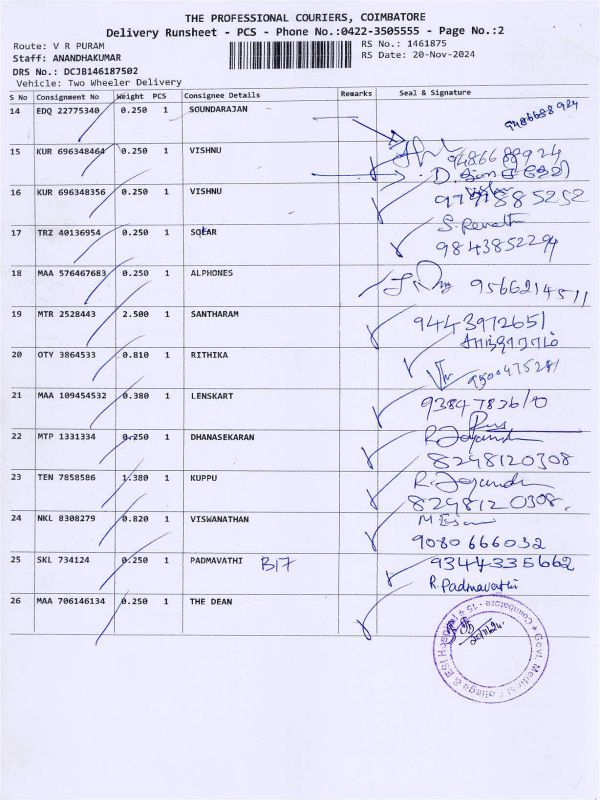 THE PROFESSIONAL COURIERS, COIMBATORE
Delivery Runsheet - PCS - Phone No.:0422-3505555 - Page No.:2
Route: V R PURAM
RS No.: 1461875
Staff: ANANDHAKUMAR
RS Date: 20-Nov-2024
DRS No.: DCJB146187502
Vehicle: Two Wheeler Delivery
S No Consignment No Weight PCS Consignee Details Remarks Seal & Signature
14 EDQ 22775340 0.250 1 SOUNDARAJAN 9486688924
15 KUR 696348464 0.250 1 VISHNU 9486688924
16 KUR 696348356 0.250 1 VISHNU
17 TRZ 40136954 0.250 1 SOLAR
9843852294
18 MAA 576467683 0.250 1 ALPHONES 9566214511
19 MTR 2528443 2.500 1 SANTHARAM 9443972651
சாந்தாராம்
20 OTY 3864533 0.810 1 RITHIKA
21 MAA 109454532 0.380 1 LENSKART
22 MTP 1331334 0.250 1 DHANASEKARAN
8248120308
23 TEN 7858586 1.380 1 KUPPU
8248120308.
24 NKL 8308279 0.820 1 VISWANATHAN
9080666032
25 SKL 734124 0.250 1 PADMAVATHI B17 9344335662
R.Padmavathi
26 MAA 706146134 0.250 1 THE DEAN
Govt. Medical College & ESI Hospital * Coimbatore - 15 *
20/11/24